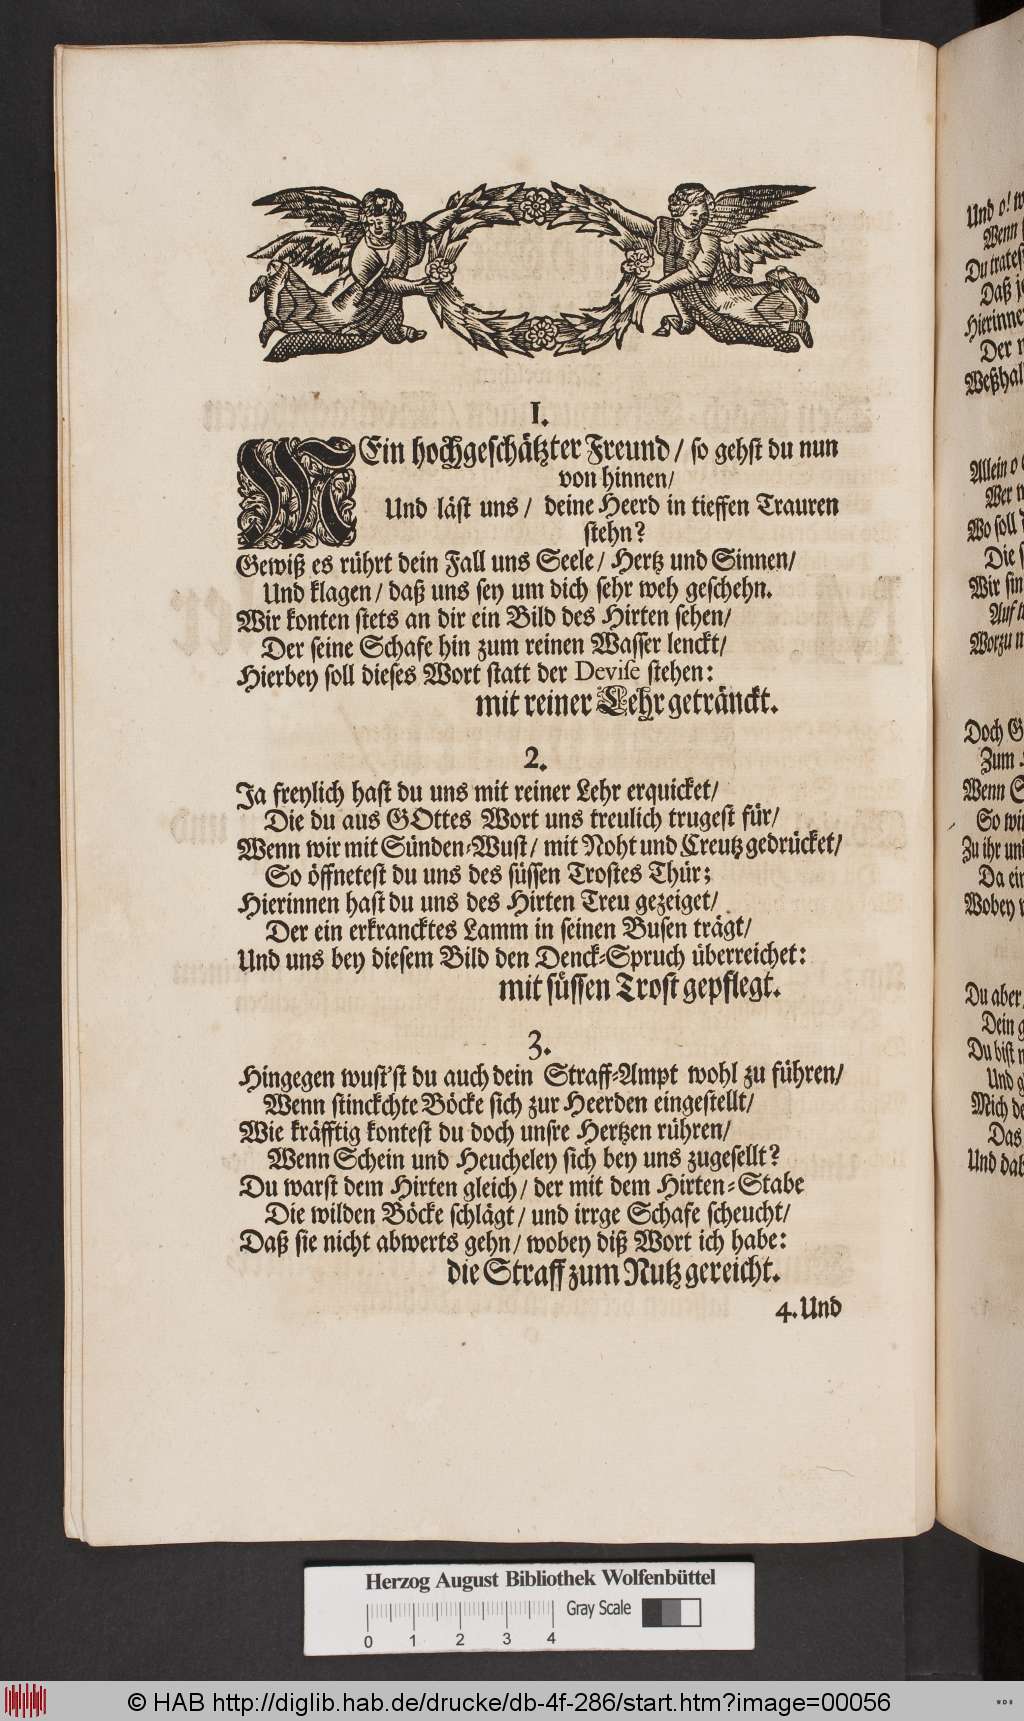 I.
MEin hochgeschätzter Freund / so gehst du nun
von hinnen /
Und läst uns / deine Heerd in tieffen Trauren
stehn?
Gewiß es rührt dein Fall uns Seele / Hertz und Sinnen /
Und klagen / daß uns sey um dich sehr weh geschehn.
Wir konten stets an dir ein Bild des Hirten sehen /
Der seine Schafe hin zum reinen Wasser lenckt /
Hierbey soll dieses Wort statt der Devise stehen:
mit reiner Lehr getränckt.
2.
Ja freylich hast du uns mit reiner Lehr erquicket /
Die du aus GOttes Wort uns treulich trugest für /
Wenn wir mit Sünden-Wust / mit Noht und Creutz gedrücket /
So öffnetest du uns des süssen Trostes Thür;
Hierinnen hast du uns des Hirten Treu gezeiget /
Der ein erkrancktes Lamm in seinen Busen trägt /
Und uns bey diesem Bild den Denck-Spruch überreichet:
mit süssen Trost gepflegt.
3.
Hingegen wust'st du auch dein Straff-Ampt wohl zu führen /
Wenn stinckchte Böcke sich zur Heerden eingestellt /
Wie kräfftig kontest du doch unsre Hertzen rühren /
Wenn Schein und Heucheley sich bey uns zugesellt?
Du warst dem Hirten gleich / der mit dem Hirten-Stabe
Die wilden Böcke schlägt / und irrge Schafe scheucht /
Daß sie nicht abwerts gehn / wobey diß Wort ich habe:
die Straff zum Nutz gereicht.
4. Und
Und o!
Wenn
Du trates
Daß
Hierinne
Der
Weßhal
Allein o
Wer
Wo soll
Die
Wir sin
Auf
Worzu
Doch G
Zum
Wenn
So wir
Zu ihr und
Da ein
Wobey
Du aber
Dein
Du bist
Und
Mich de
Das
Und dab
Herzog August Bibliothek Wolfenbüttel
Gray Scale
0 1 2 3 4
© HAB http://diglib.hab.de/drucke/db-4f-286/start.htm?image=00056